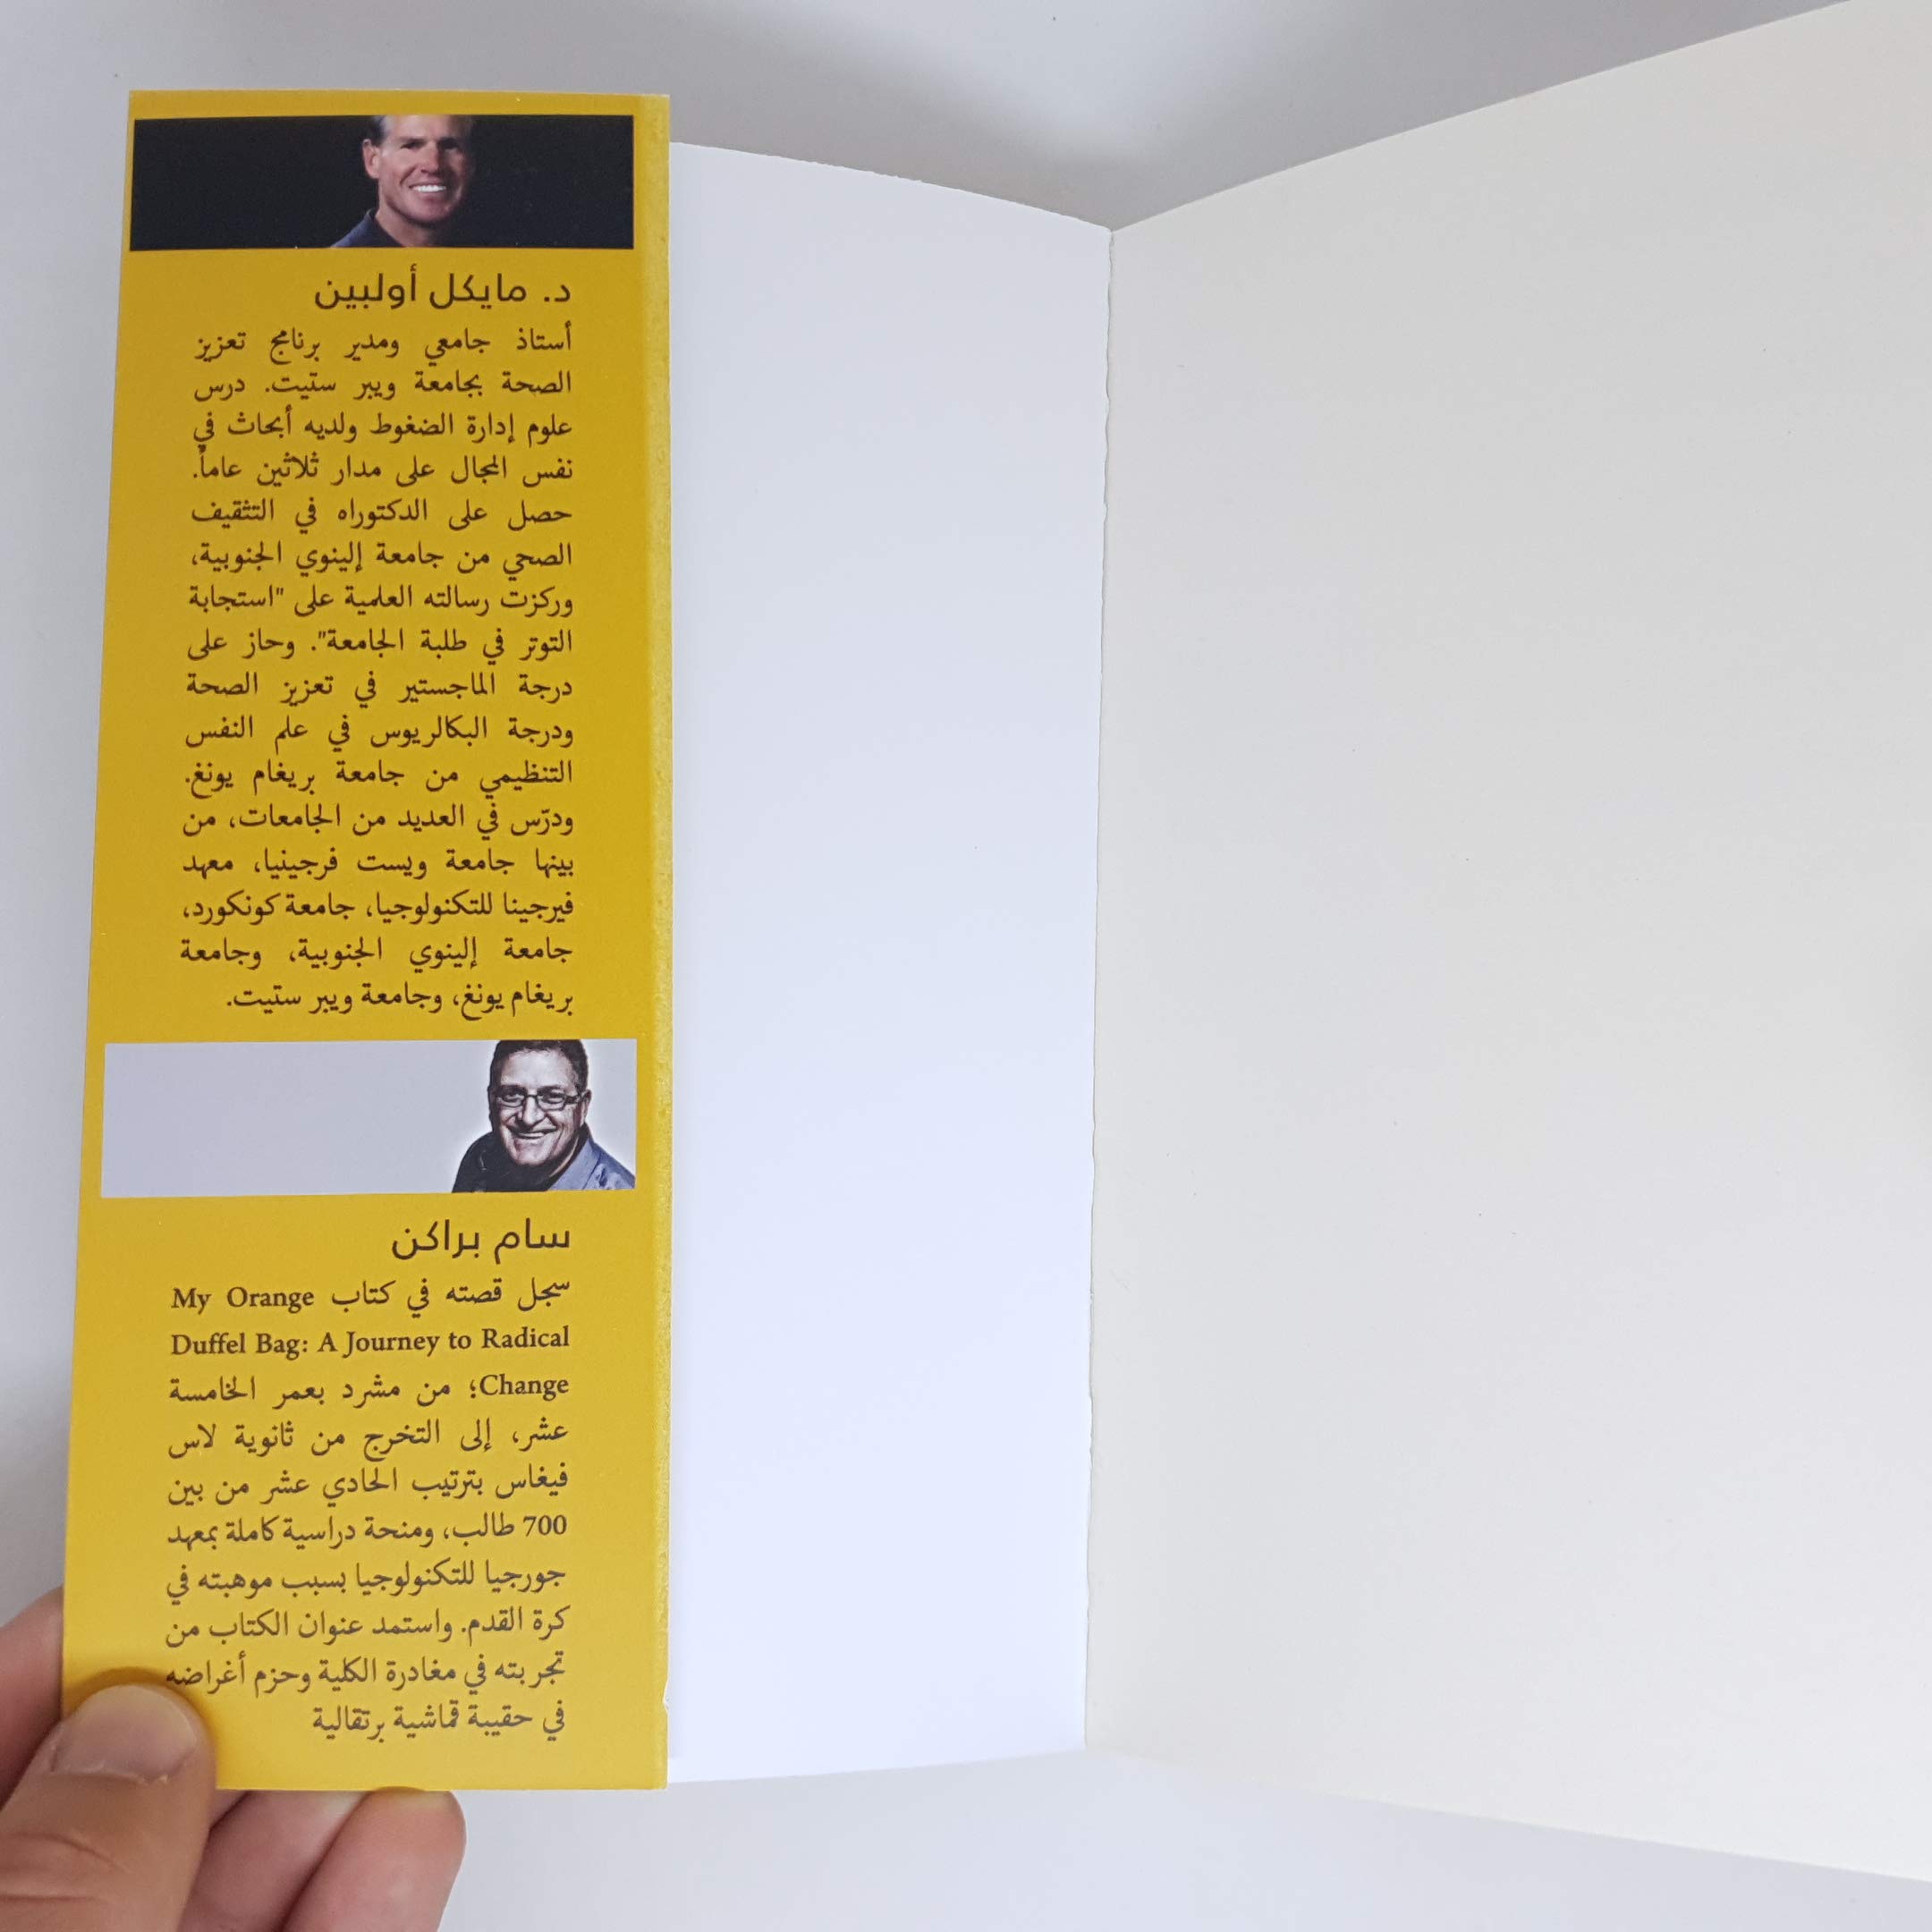 د. مايكل أولبين
أستاذ جامعي ومدير برنامج تعزيز
الصحة بجامعة ويبر ستيت. درس
علوم إدارة الضغوط ولديه أبحاث في
نفس المجال على مدار ثلاثين عاماً.
حصل على الدكتوراه في التثقيف
الصحي من جامعة إلينوي الجنوبية،
وركزت رسالته العلمية على "استجابة
التوتر في طلبة الجامعة". وحاز على
درجة الماجستير في تعزيز الصحة
ودرجة البكالريوس في علم النفس
التنظيمي من جامعة بريغام يونغ.
ودرّس في العديد من الجامعات، من
بينها جامعة ويست فرجينيا، معهد
فيرجينا للتكنولوجيا، جامعة كونكورد،
جامعة إلينوي الجنوبية، وجامعة
بريغام يونغ، وجامعة ويبر ستيت.
سام براكن
سجل قصته في كتاب My Orange
Duffel Bag: A Journey to Radical
Change؛ من مشرد بعمر الخامسة
عشر، إلى التخرج من ثانوية لاس
فيغاس بترتيب الحادي عشر من بين
700 طالب، ومنحة دراسية كاملة بمعهد
جورجيا للتكنولوجيا بسبب موهبته في
كرة القدم. واستمد عنوان الكتاب من
تجربته في مغادرة الكلية وحزم أغراضه
في حقيبة قماشية برتقالية